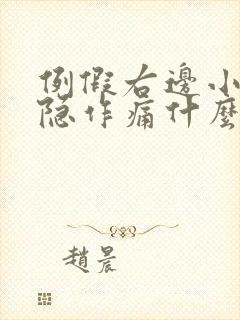 例假右邊小
隐作痛什麼
趙晨